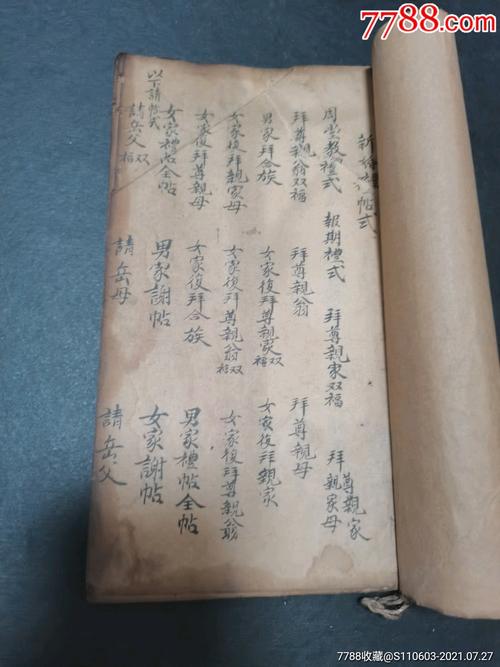 7788.com
新 帖式
周堂教禮式 報期禮式 拜尊親家双福 拜尊親家 親家母
拜尊親翁双福 拜尊親翁 拜尊親母
男家拜合族 女家復拜尊親家双福 女家復拜親家
女家復拜親家母 女家復拜尊親翁双福 女家復拜尊親翁
女家復拜尊親母 女家復拜合族 男家禮帖全帖
女家禮帖全帖 男家謝帖 女家謝帖
以下請帖式
請岳父双福 請岳母 請岳父
7788收藏@S110603-2021.07.27